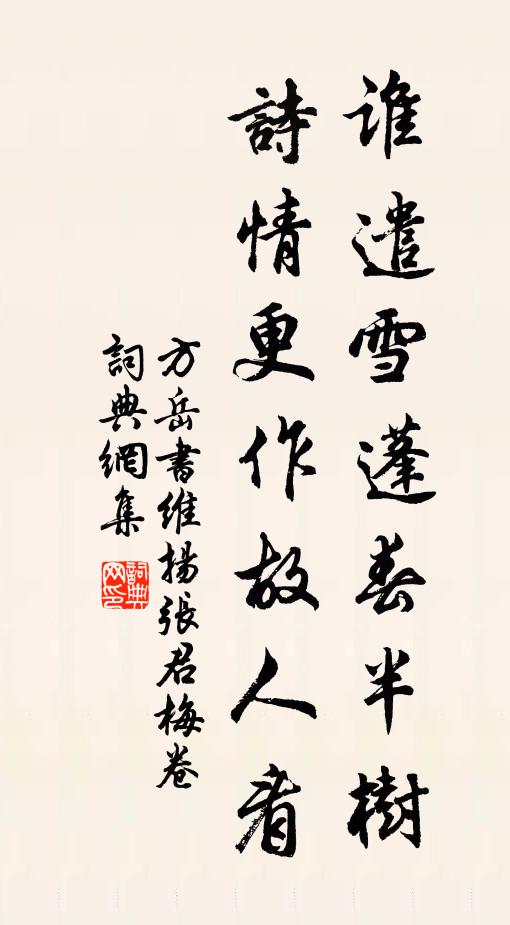 谁遣雪蓬春半樹
詩情更作故人看
方岳書維揚張君梅卷
詞典網集
詞典網印